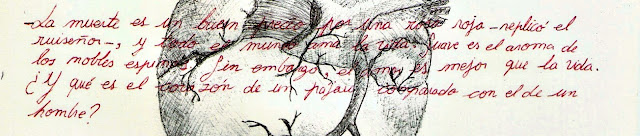 -La muerte es un buen precio por una rosa roja -replicó el
ruiseñor-, y todo el mundo ama la vida. Suave es el aroma de
los nobles espinos. Sin embargo, el amor es mejor que la vida.
¿Y qué es el corazón de un pájaro comparado con el de un
hombre?